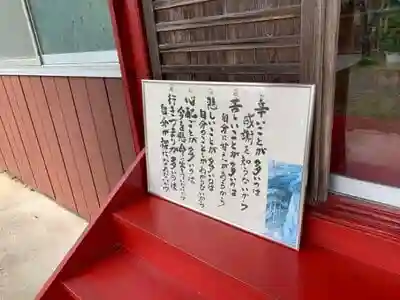 辛いことが多いのは
感謝を知らないから
苦しいことが多いのは
自分に甘えがあるから
悲しいことが多いのは
自分のことしか分らないから
心配することが多いのは
今を懸命に生きていないから
行きづまりが多いのは
自分が裸になれないから